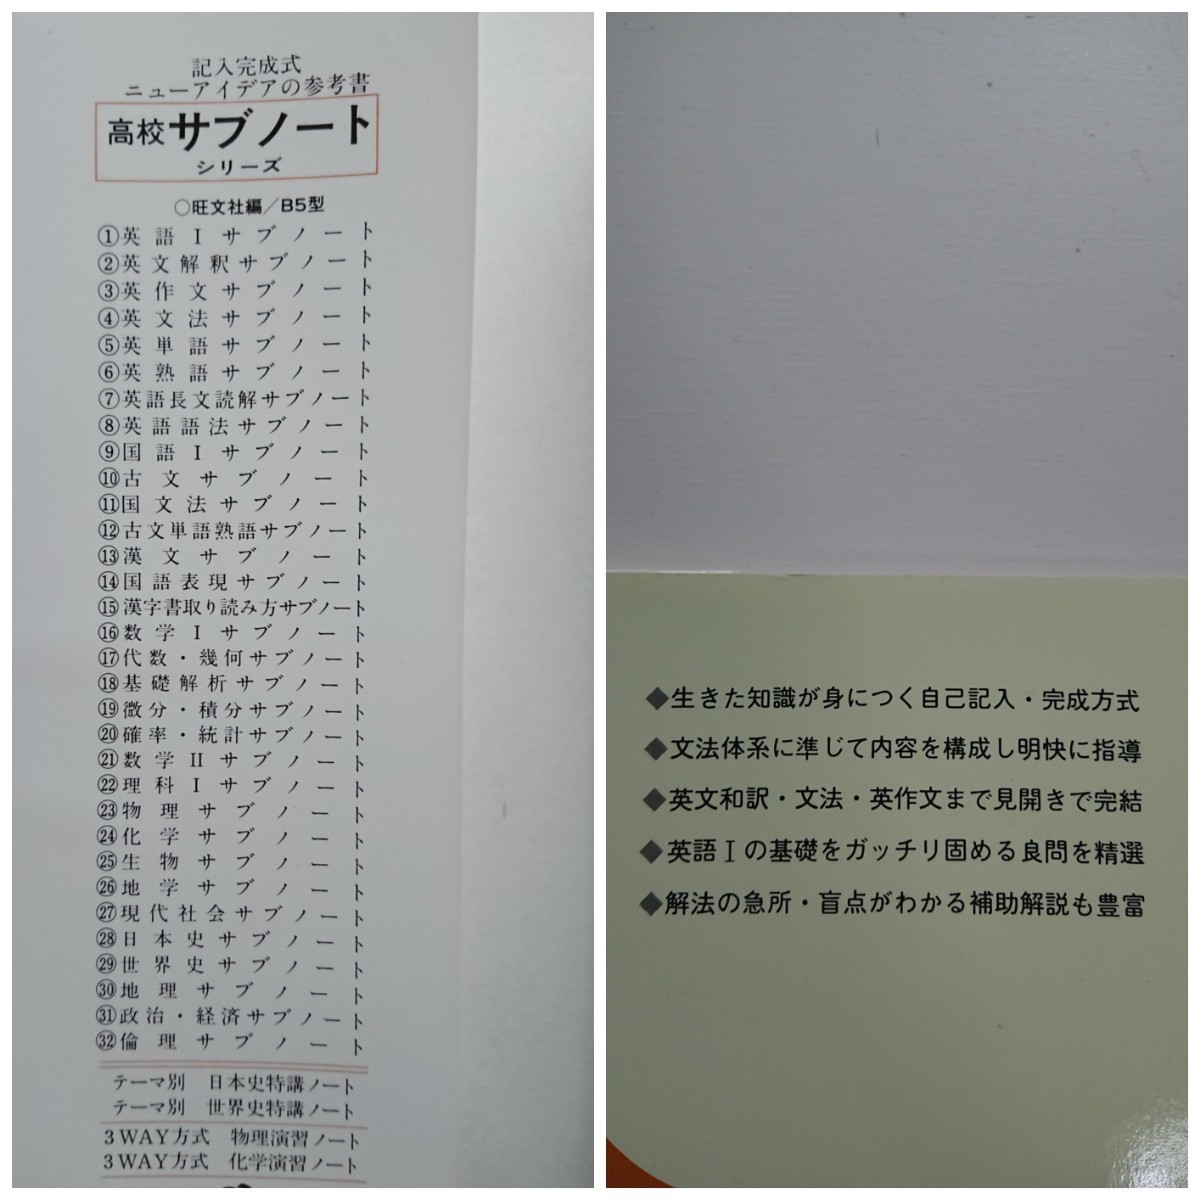 記入完成式
ニューアイデアの参考書
高校 サブノート
シリーズ
○旺文社編／B5型
①英語Ⅰサブノート
②英文解釈サブノート
③英作文サブノート
④英文法サブノート
⑤英単語サブノート
⑥英熟語サブノート
⑦英語長文読解サブノート
⑧英語語法サブノート
⑨国語Ⅰサブノート
⑩古文サブノート
⑪国文法サブノート
⑫古文単語熟語サブノート
⑬漢文サブノート
⑭国語表現サブノート
⑮漢字書取り読み方サブノート
⑯数学Ⅰサブノート
⑰代数・幾何サブノート
⑱基礎解析サブノート
⑲微分・積分サブノート
⑳確率・統計サブノート
㉑数学Ⅱサブノート
㉒理科Ⅰサブノート
㉓物理サブノート
㉔化学サブノート
㉕生物サブノート
㉖地学サブノート
㉗現代社会サブノート
㉘日本史サブノート
㉙世界史サブノート
㉚地理サブノート
㉛政治・経済サブノート
㉜倫理サブノート
テーマ別 日本史特講ノート
テーマ別 世界史特講ノート
3WAY方式 物理演習ノート
3WAY方式 化学演習ノート
◆生きた知識が身につく自己記入・完成方式
◆文法体系に準じて内容を構成し明快に指導
◆英文和訳・文法・英作文まで見開きで完結
◆英語Ⅰの基礎をガッチリ固める良問を精選
◆解法の急所・盲点がわかる補助解説も豊富